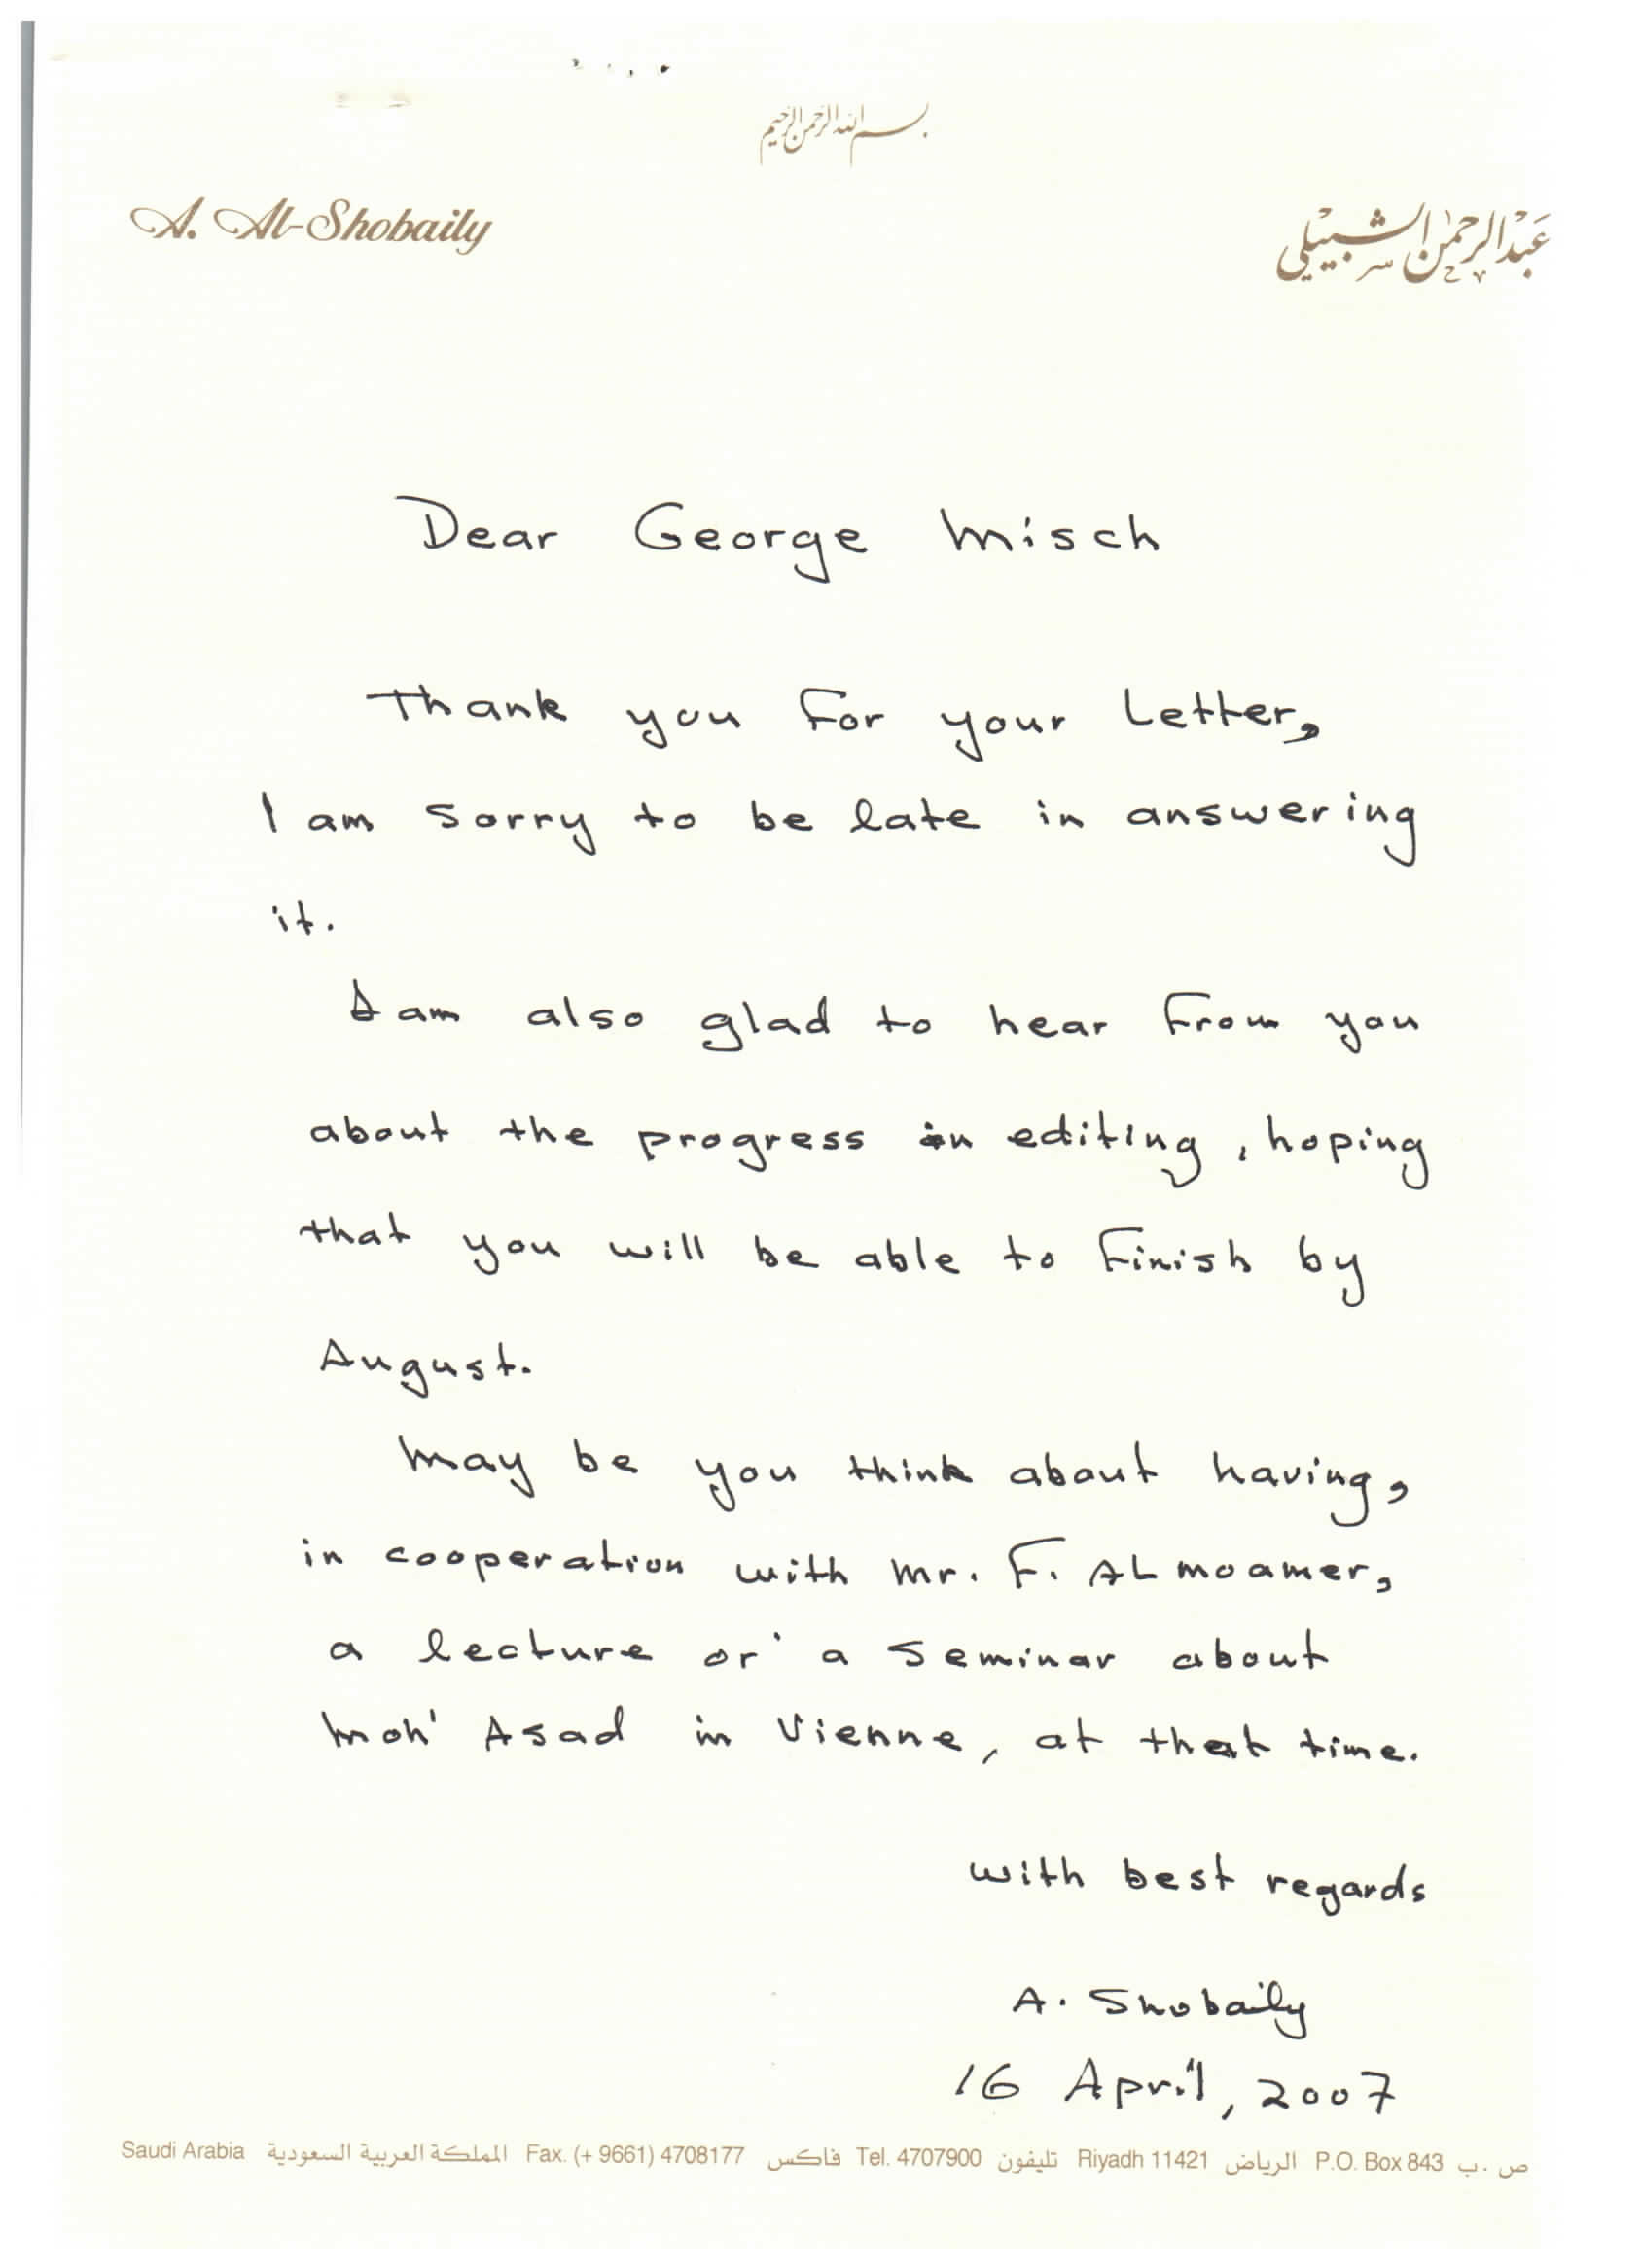 بسم الله الرحمن الرحيم
A. Al-Shobaily
عبد الرحمن الشبيلي
Dear George Misch
Thank you For your Letter,
I am sorry to be late in answering
it.
I am also glad to hear From you
about the progress in editing, hoping
that you will be able to Finish by
August.
May be you think about having,
in cooperation with Mr. F. ALmoamer,
a lecture or a seminar about
Moh' Asad in Vienne, at that time.
with best regards
A. Shobaily
16 April, 2007
Saudi Arabia المملكة العربية السعودية Fax. (+ 9661) 4708177 فاكس Tel. 4707900 تليفون Riyadh 11421 الرياض P.O. Box 843 ص . ب